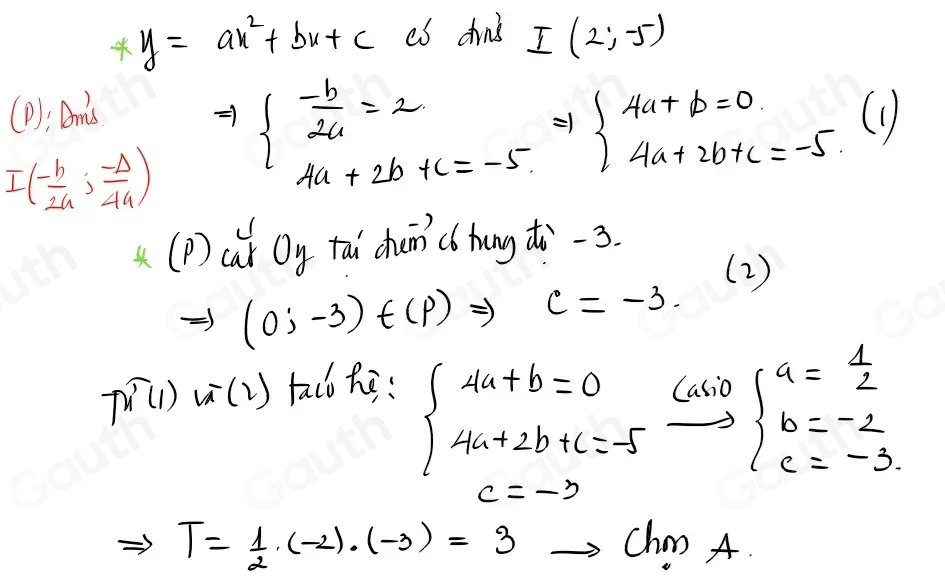 * y = ax² + bx + c có đỉnh I (2; -5)
(P): Đỉnh I(-b/2a ; -Δ/4a)
⇒ { -b/2a = 2. 4a + 2b + c = -5. ⇒ { 4a + b = 0. 4a + 2b + c = -5. (1)
* (P) cắt Oy tại điểm có tung độ -3.
⇒ (0; -3) ∈ (P) ⇒ c = -3. (2)
Từ (1) và (2) ta có hệ: { 4a + b = 0 4a + 2b + c = -5 c = -3 Casio → { a = 1/2 b = -2 c = -3.
⇒ T = 1/2 . (-2) . (-3) = 3 → Chọn A.
Gauth